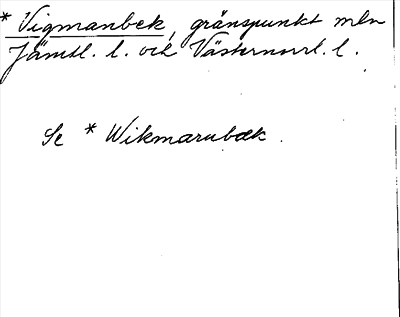 * Vigmanbek, gränspunkt mln
Jämtl. l. och Västernorrl. l.
Se * Wikmarubæk.